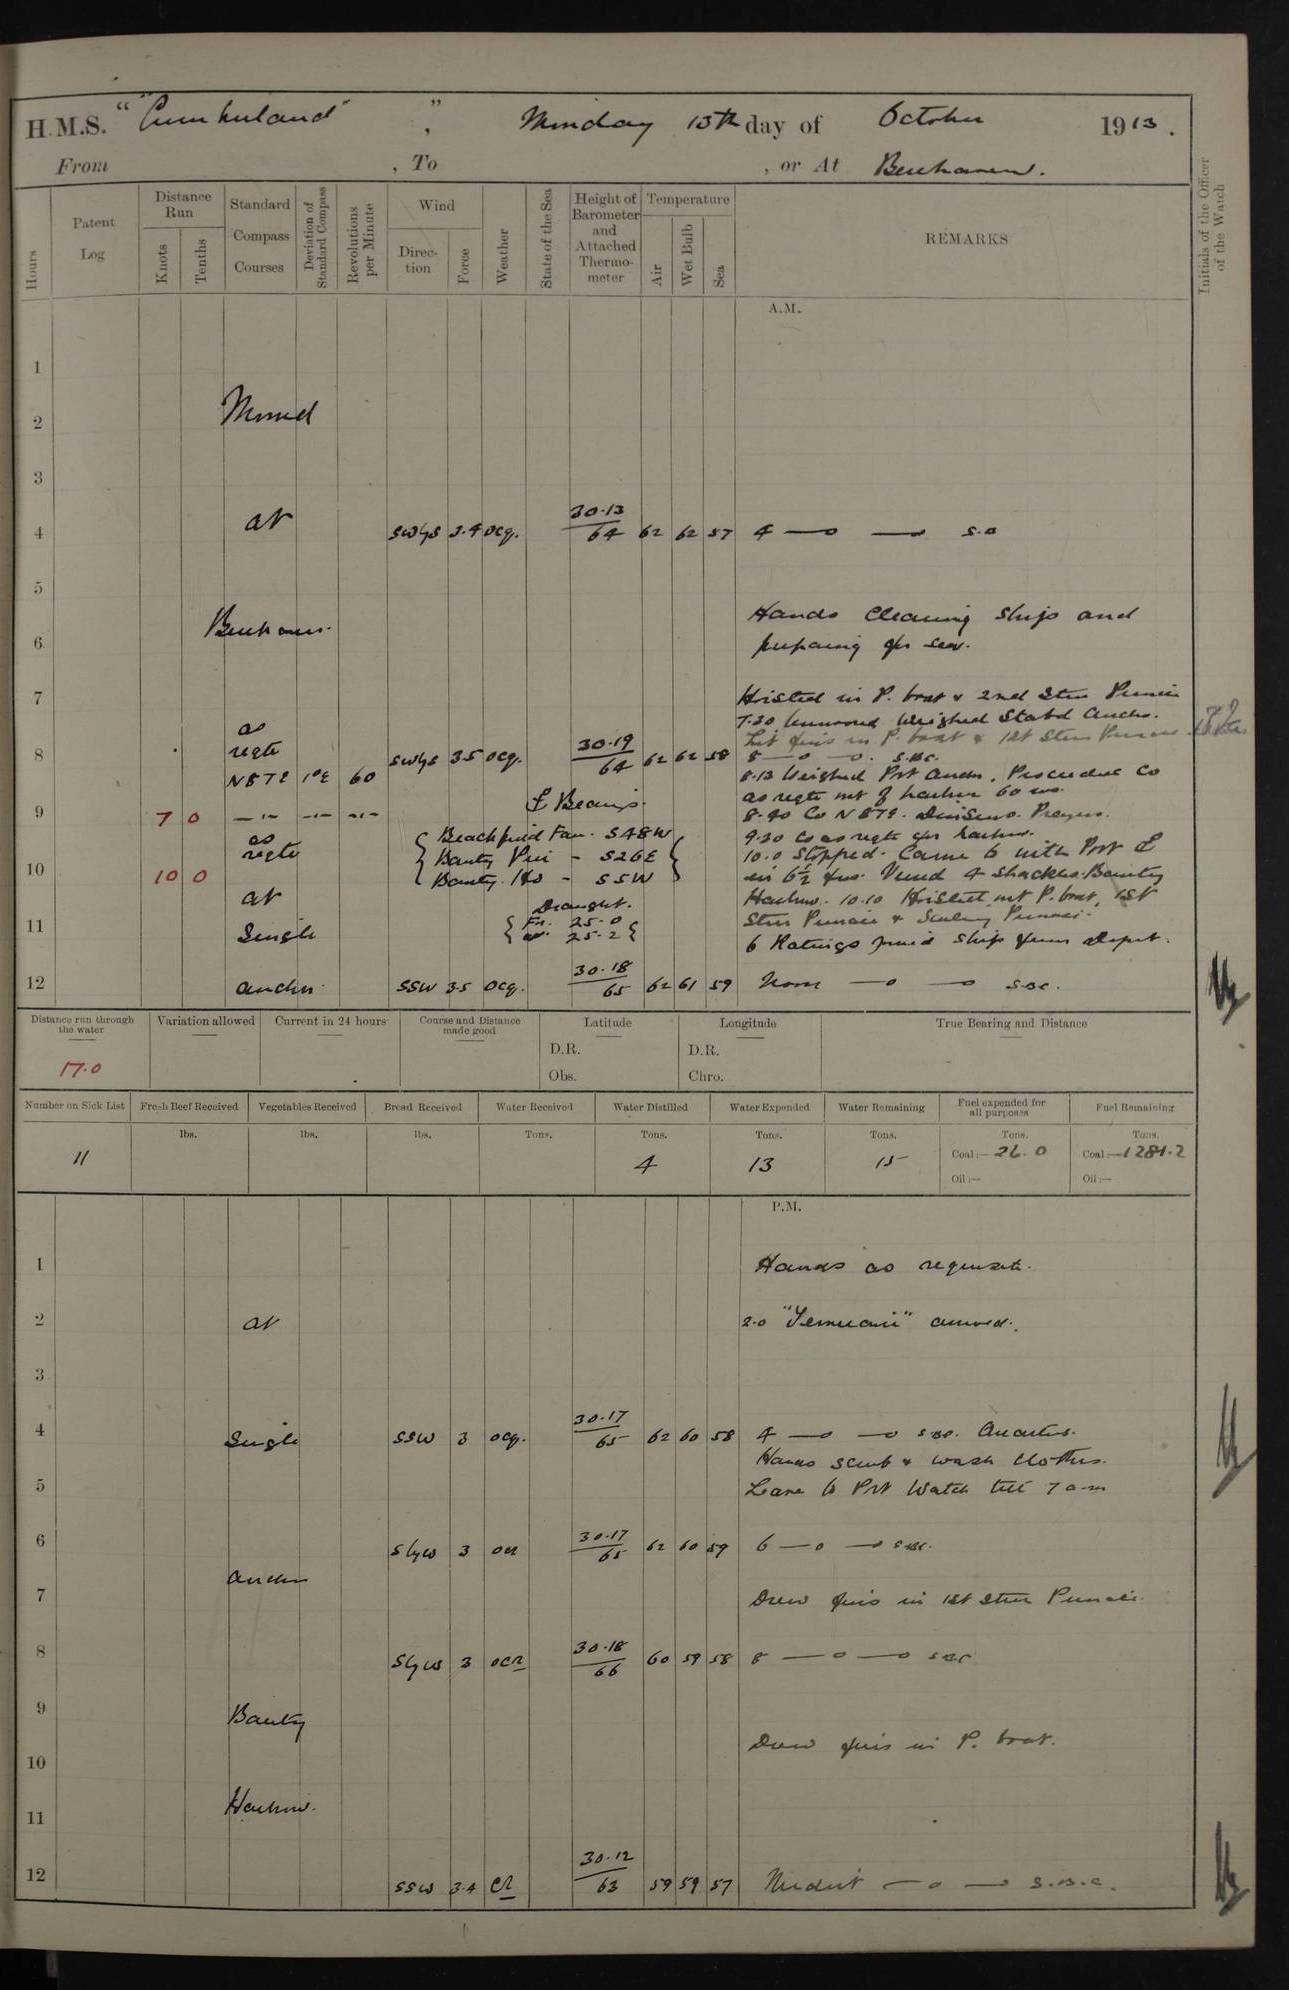 H.M.S. "Cumberland", Monday 13th day of October 1913.
From , To , or At Berehaven.
Hours
Patent Log
Distance Run
Knots
Tenths
Standard Compass Courses
Deviation of Standard Compass
Revolutions per Minute
Wind
Direction
Force
Weather
State of the Sea
Height of Barometer and Attached Thermometer
Temperature
Air
Wet Bulb
Sea
REMARKS
Initials of the Officer of the Watch
A.M.
1
2 Moored
3
4 at SWbyS 3.4 ocq. 30.13 64 62 62 57 4 —o —
5
Hands cleaning ship and
6 Berehaven. preparing for sea.
7 Hoisted in P. boat & 2nd Stm Pinnace
7.30 Unmoored Weighed Starbd Anchr.
as Lit fires in P. boat & 1st Stm Pinnace
8 reqte SWbyS 3.5 ocq. 30.19 64 62 62 58 8 —o —o. S.B.C.
N87E 1°E 60 8.13 Weighed Port Anchr. Proceeded Co
as reqte out of harbour 60 revs.
9 7 0 —"— —"— —"— £ Bearings. 8.40 Co N87E. Divisions. Prayers.
as Beach S48W 9.30 Co as reqte for harbour.
reqte Bantry Pier - S26E 10.0 Stopped. Came to with Port £
10 10 0 Bantry Ho - SSW in 6½ fms. Veered 4 shackles. Bantry
at Draught. Harbour. 10.10 Hoisted out P. boat, 1st
11 For. 25-0 Stm Pinnace & Sailing Pinnace.
Single 25-2 6 Ratings joined ship from depot.
12 anchor SSW 3.5 ocq. 30.18 65 62 61 59 Noon —o —o S.B.C.
Distance run through the water
Variation allowed
Current in 24 hours
Course and Distance made good
Latitude
Longitude
True Bearing and Distance
D.R. D.R.
17.0
Obs. Chro.
Number on Sick List
Fresh Beef Received
Vegetables Received
Bread Received
Water Received
Water Distilled
Water Expended
Water Remaining
Fuel expended for all purposes
Fuel Remaining
lbs. lbs. lbs. Tons. Tons. Tons. Tons. Tons. Tons.
11 4 13 15 Coal:—26.0 Coal:—1281.2
Oil:— Oil:—
P.M.
1 Hands as requisite.
2 at 2.0 arrived.
3
4 Single SSW 3 ocq. 30.17 65 62 60 58 4 —o —o S.B.C. Quarters.
Hands scrub & wash clothes.
5 Leave to Port Watch till 7 a.m
6 SbyW 3 30.17 65 62 60 59 6 —o —o S.B.C.
anchor
7 Drew fires in 1st Stm Pinnace.
8 SbyW 3 ocr 30.18 66 60 59 58 8 —o —o S.B.C
9 Bantry
Drew fires in P. boat.
10
11 Harbour.
12 SSW 3.4 cr 30.12 63 59 59 57 Midnt —o — S.B.C.